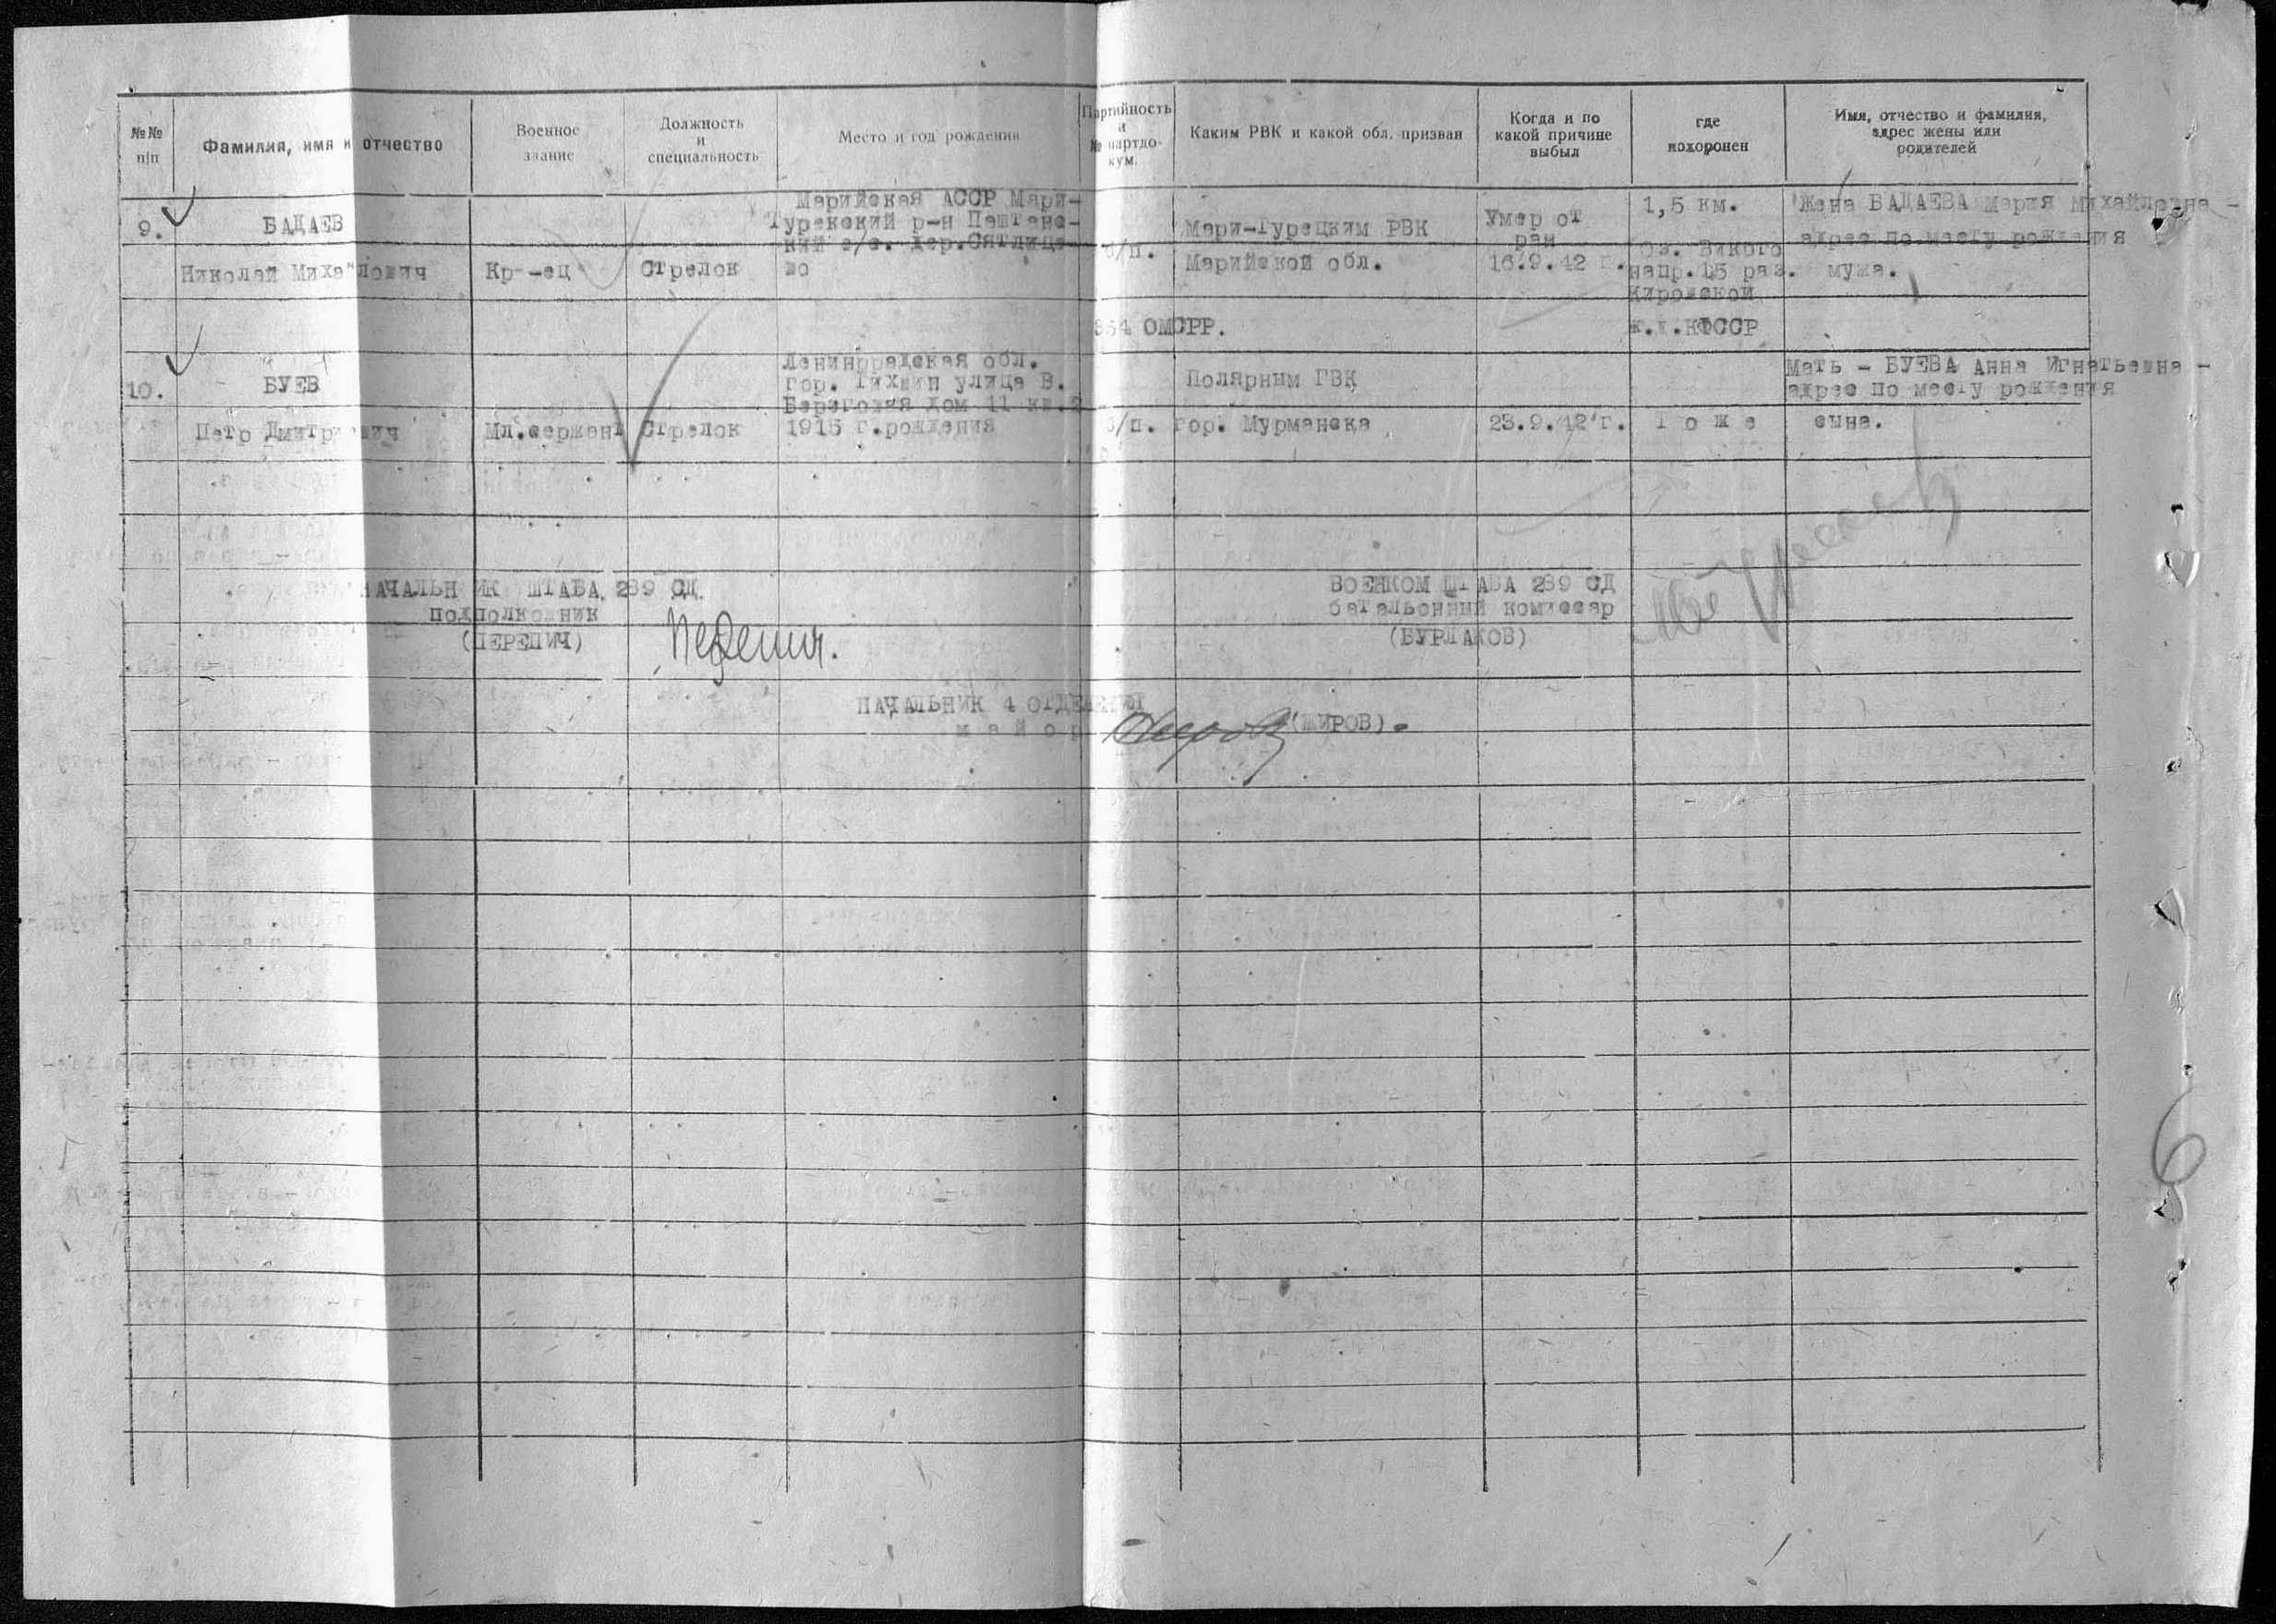 №№ п/п
Фамилия, имя и отчество
Военное звание
Должность и специальность
Место и год рождения
Партийность и № партдокум.
Каким РВК и какой обл. призван
Когда и по какой причине выбыл
где похоронен
Имя, отчество и фамилия, адрес жены или родителей
9.
БАДАЕВ
Николай Михайлович
Кр-ец
Стрелок
Марийская АССР Мари-
Турекский р-н Паштанс-
кий с/с. дер.
б/п.
Мари-Турецким РВК
Марийской обл.
Умер от
ран
16.9.42 г.
1,5 км.
Оз. Викого
напр.15 раз.
Кировской
ж.д.КФССР
Жена БАДАЕВА Мария Михайловна -
адрес по месту рождения
мужа.
ОМСРР.
10.
БУЕВ
Петр Дмитриевич
Мл.сержант
Стрелок
Ленинградская обл.
гор. Тихвин улица В.
Береговая дом 11 кв.2
1915 г.рождения
б/п.
Полярным ГВК
гор. Мурманска
23.9.42 г.
Т о ж е
Мать - БУЕВА Анна Игнатьевна -
адрес по месту рождения
сына.
НАЧАЛЬНИК ШТАБА 289 СД
подполковник
(ПЕРЕПИЧ)
ВОЕНКОМ ШТАБА 289 СД
батальонный комиссар
(БУРЛАКОВ)
НАЧАЛЬНИК 4 ОТДЕЛЕНИЯ
м а й о р
(ШИРОВ).
6